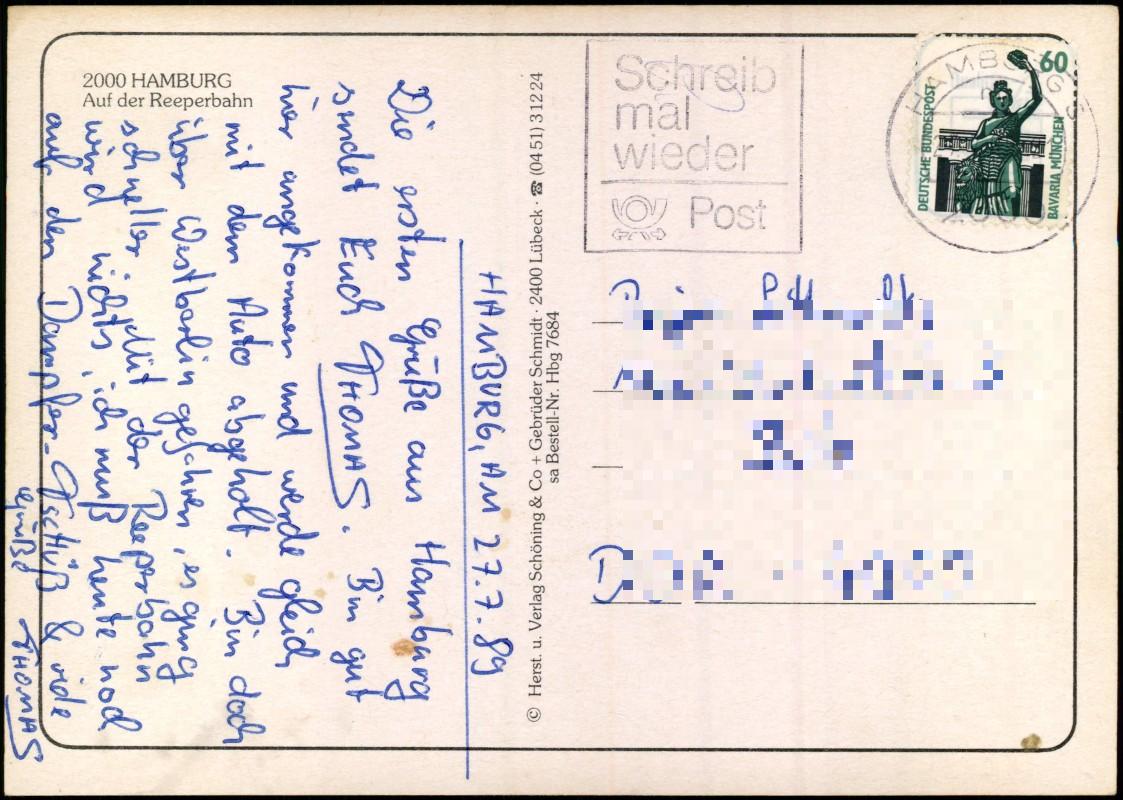 2000 HAMBURG
Auf der Reeperbahn
HAMBURG, AM 27.7.89
Die ersten Grüße aus Hamburg
sendet Euch THOMAS. Bin gut
hier angekommen und werde gleich
mit dem Auto abgeholt. Bin doch
über Westberlin gefahren, es ging
schneller. Mit der Reeperbahn
wird nichts, ich muß heute noch
auf den Dampfer. Tschüß & viele
Grüße THOMAS
© Herst. u. Verlag Schöning & Co + Gebrüder Schmidt · 2400 Lübeck · ☎ (04 51) 3 12 24
sa Bestell-Nr. Hbg 7684
Schreib
mal
wieder
Post
HAMBURG
60
DEUTSCHE BUNDESPOST
BAVARIA MÜNCHEN